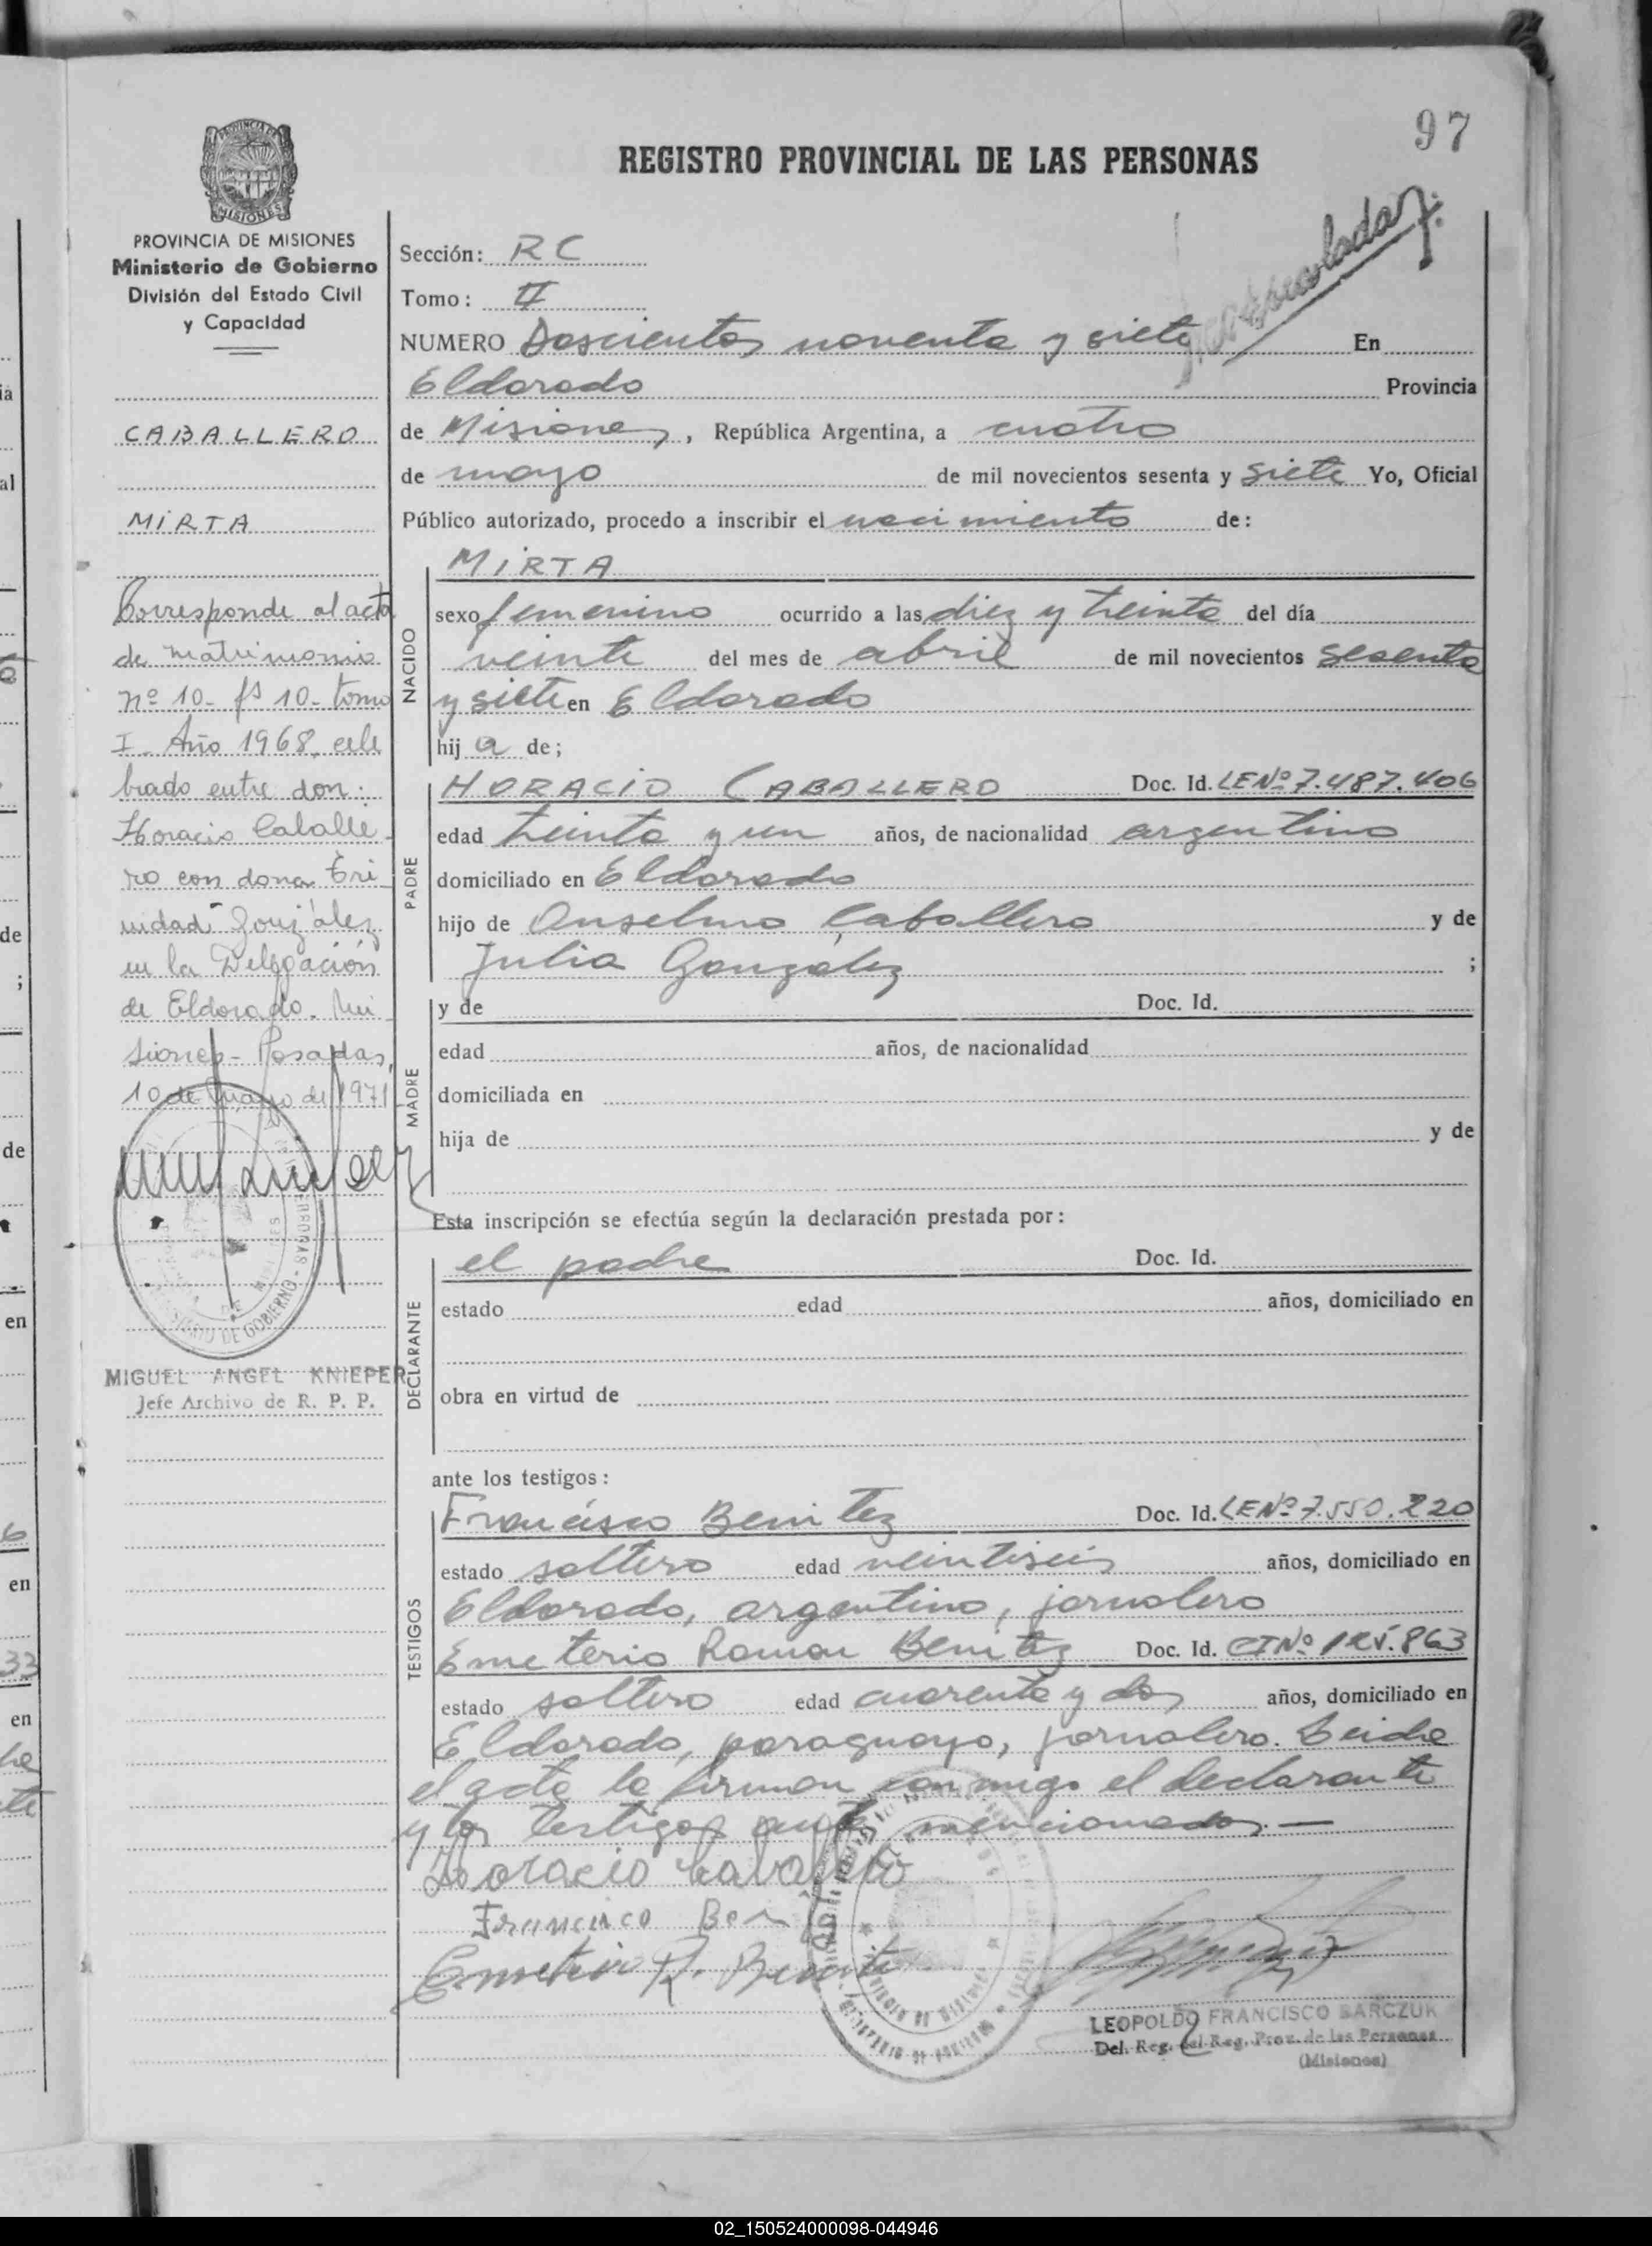 97
REGISTRO PROVINCIAL DE LAS PERSONAS
PROVINCIA DE MISIONES
Ministerio de Gobierno
División del Estado Civil
y Capacidad
CABALLERO
MIRTA
Corresponde al acta
de matrimonio
nº 10- fs 10- tomo
I- Año 1968, cele
brado entre don:
Horacio Caballe
ro con dona Tri
nidad González
en la Delegación
de Eldorado. Mi
siones- Posadas,
10 de Mayo de 1971
MIGUEL ANGEL KNIEPER
Jefe Archivo de R. P. P.
Sección: RC
Tomo: II
NUMERO Doscientos noventa y siete En
Eldorado Provincia
de Misiones, República Argentina, a cuatro
de mayo de mil novecientos sesenta y siete Yo, Oficial
Público autorizado, procedo a inscribir el nacimiento de:
NACIDO
MIRTA
sexo femenino ocurrido a las diez y treinta del día
veinte del mes de abril de mil novecientos sesenta
y siete en Eldorado
hij a de;
PADRE
HORACIO CABALLERO Doc. Id. LENº 7.487.406
edad treinta y un años, de nacionalidad argentino
domiciliado en Eldorado
hijo de Anselmo Caballero y de
Julia González ;
MADRE
y de Doc. Id.
edad años, de nacionalidad
domiciliada en
hija de y de
Esta inscripción se efectúa según la declaración prestada por:
DECLARANTE
el padre Doc. Id.
estado edad años, domiciliado en
obra en virtud de
ante los testigos:
TESTIGOS
Francisco Benitez Doc. Id. LENº 7.550.220
estado soltero edad veintiseis años, domiciliado en
Eldorado, argentino, jornalero
Emeterio Ramon Benitez Doc. Id. CINº
estado soltero edad cuarenta y dos años, domiciliado en
Eldorado, paraguayo, jornalero. Leida
el acta la firman conmigo el declarante
y los testigos ante mencionados.—
Horacio Caballero
Francisco Ben
Emeterio R. Benite
LEOPOLDO FRANCISCO SARCZUK
Del. Reg. del Reg. Prov. de las Personas
(Misiones)
02_150524000098-044946